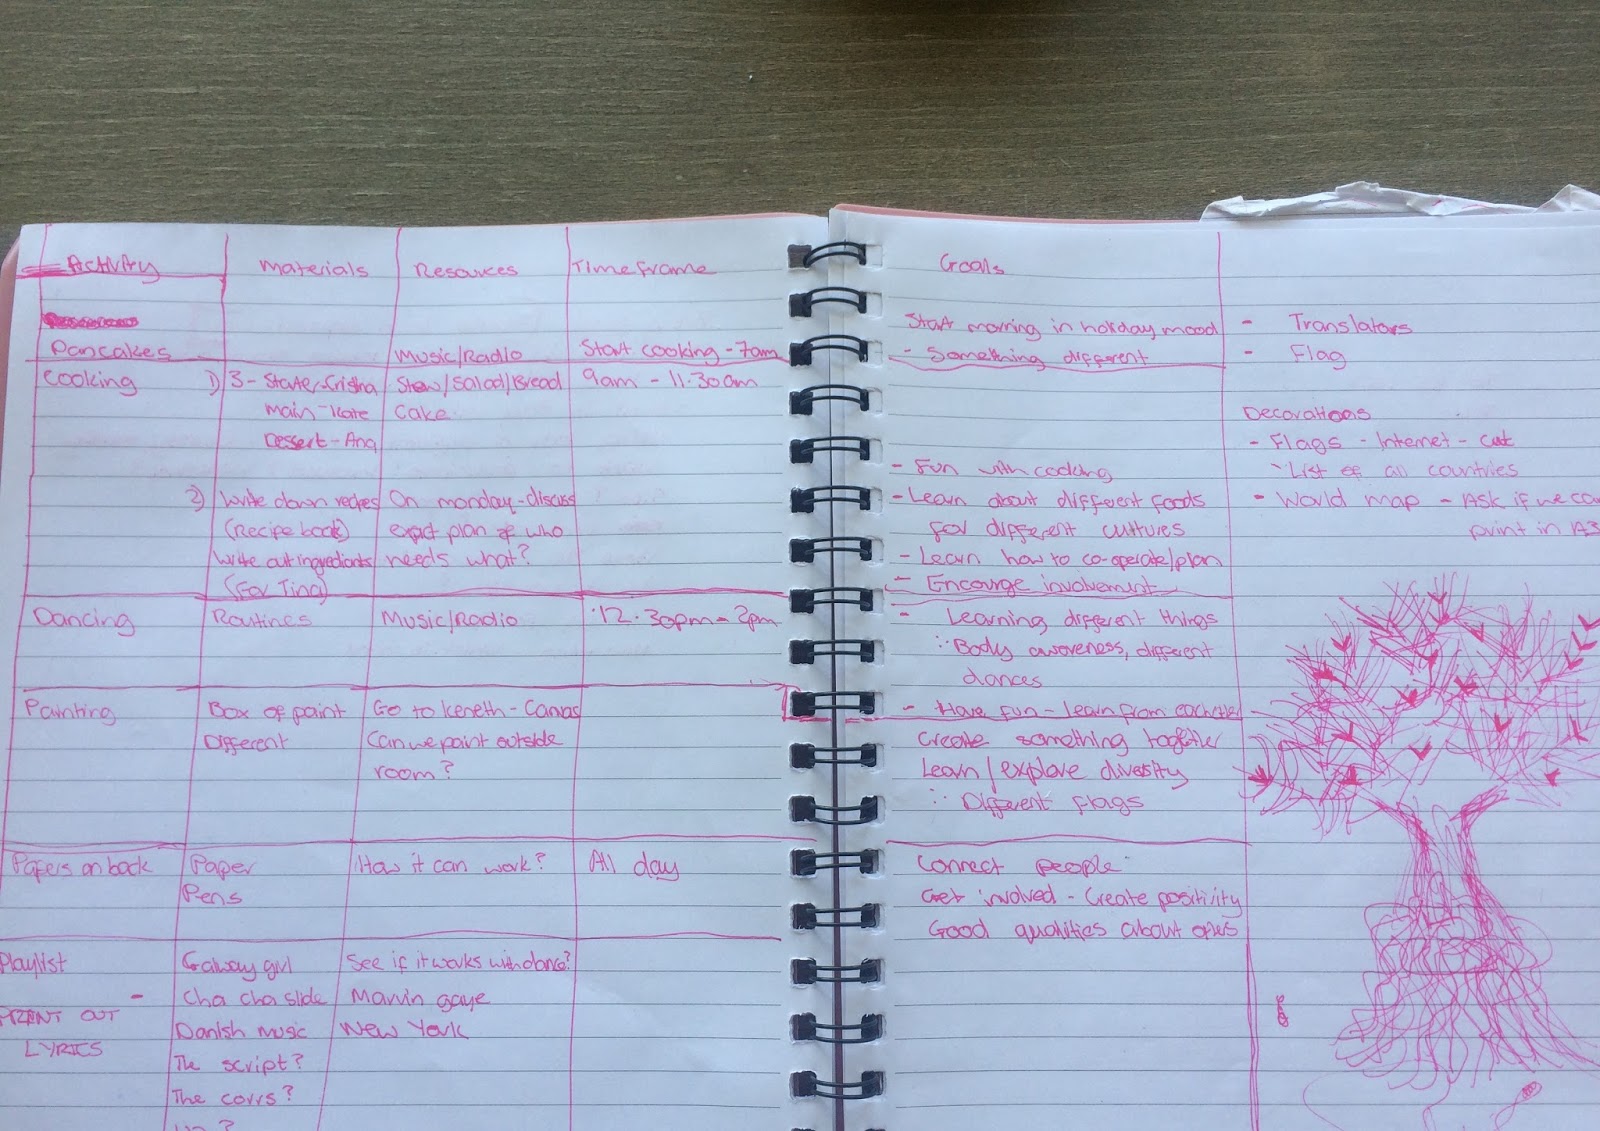 Activity Materials Resources Timeframe
Pancakes Music/Radio Start cooking - 7am
Cooking 1) 3 - Starter - Cristina Stew/Salad/Bread 9am - 11.30am
Main - Kate Cake
Dessert - Ana
2) Write down recipes On monday - discuss
(Recipe book) exact plan of who
Write out ingredients needs what?
(For Tina)
Dancing Routines Music/Radio 12.30pm - 2pm
Painting Box of paint Go to Keneth - Canvas
Different Can we paint outside
room?
Papers on back Paper How it can work? All day
Pens
Playlist Galway girl See if it works with dance?
- Cha cha slide Marvin gaye
PRINT OUT Danish music New York
LYRICS The script?
The corrs?
Goals
Start morning in holiday mood
- Something different
- Fun with cooking
- Learn about different foods
for different cultures
- Learn how to co-operate/plan
- Encourge involvement
- Learning different things
Body awareness, different
dances
- Have fun - learn from eachother
Create something together
Learn/explore diversity
Different flags
Connect people
Get involved - Create positivity
Good qualities about others
- Translators
- Flag
Decorations
- Flags - Internet - cut
List of all countries
- World map - Ask if we can
print in A3